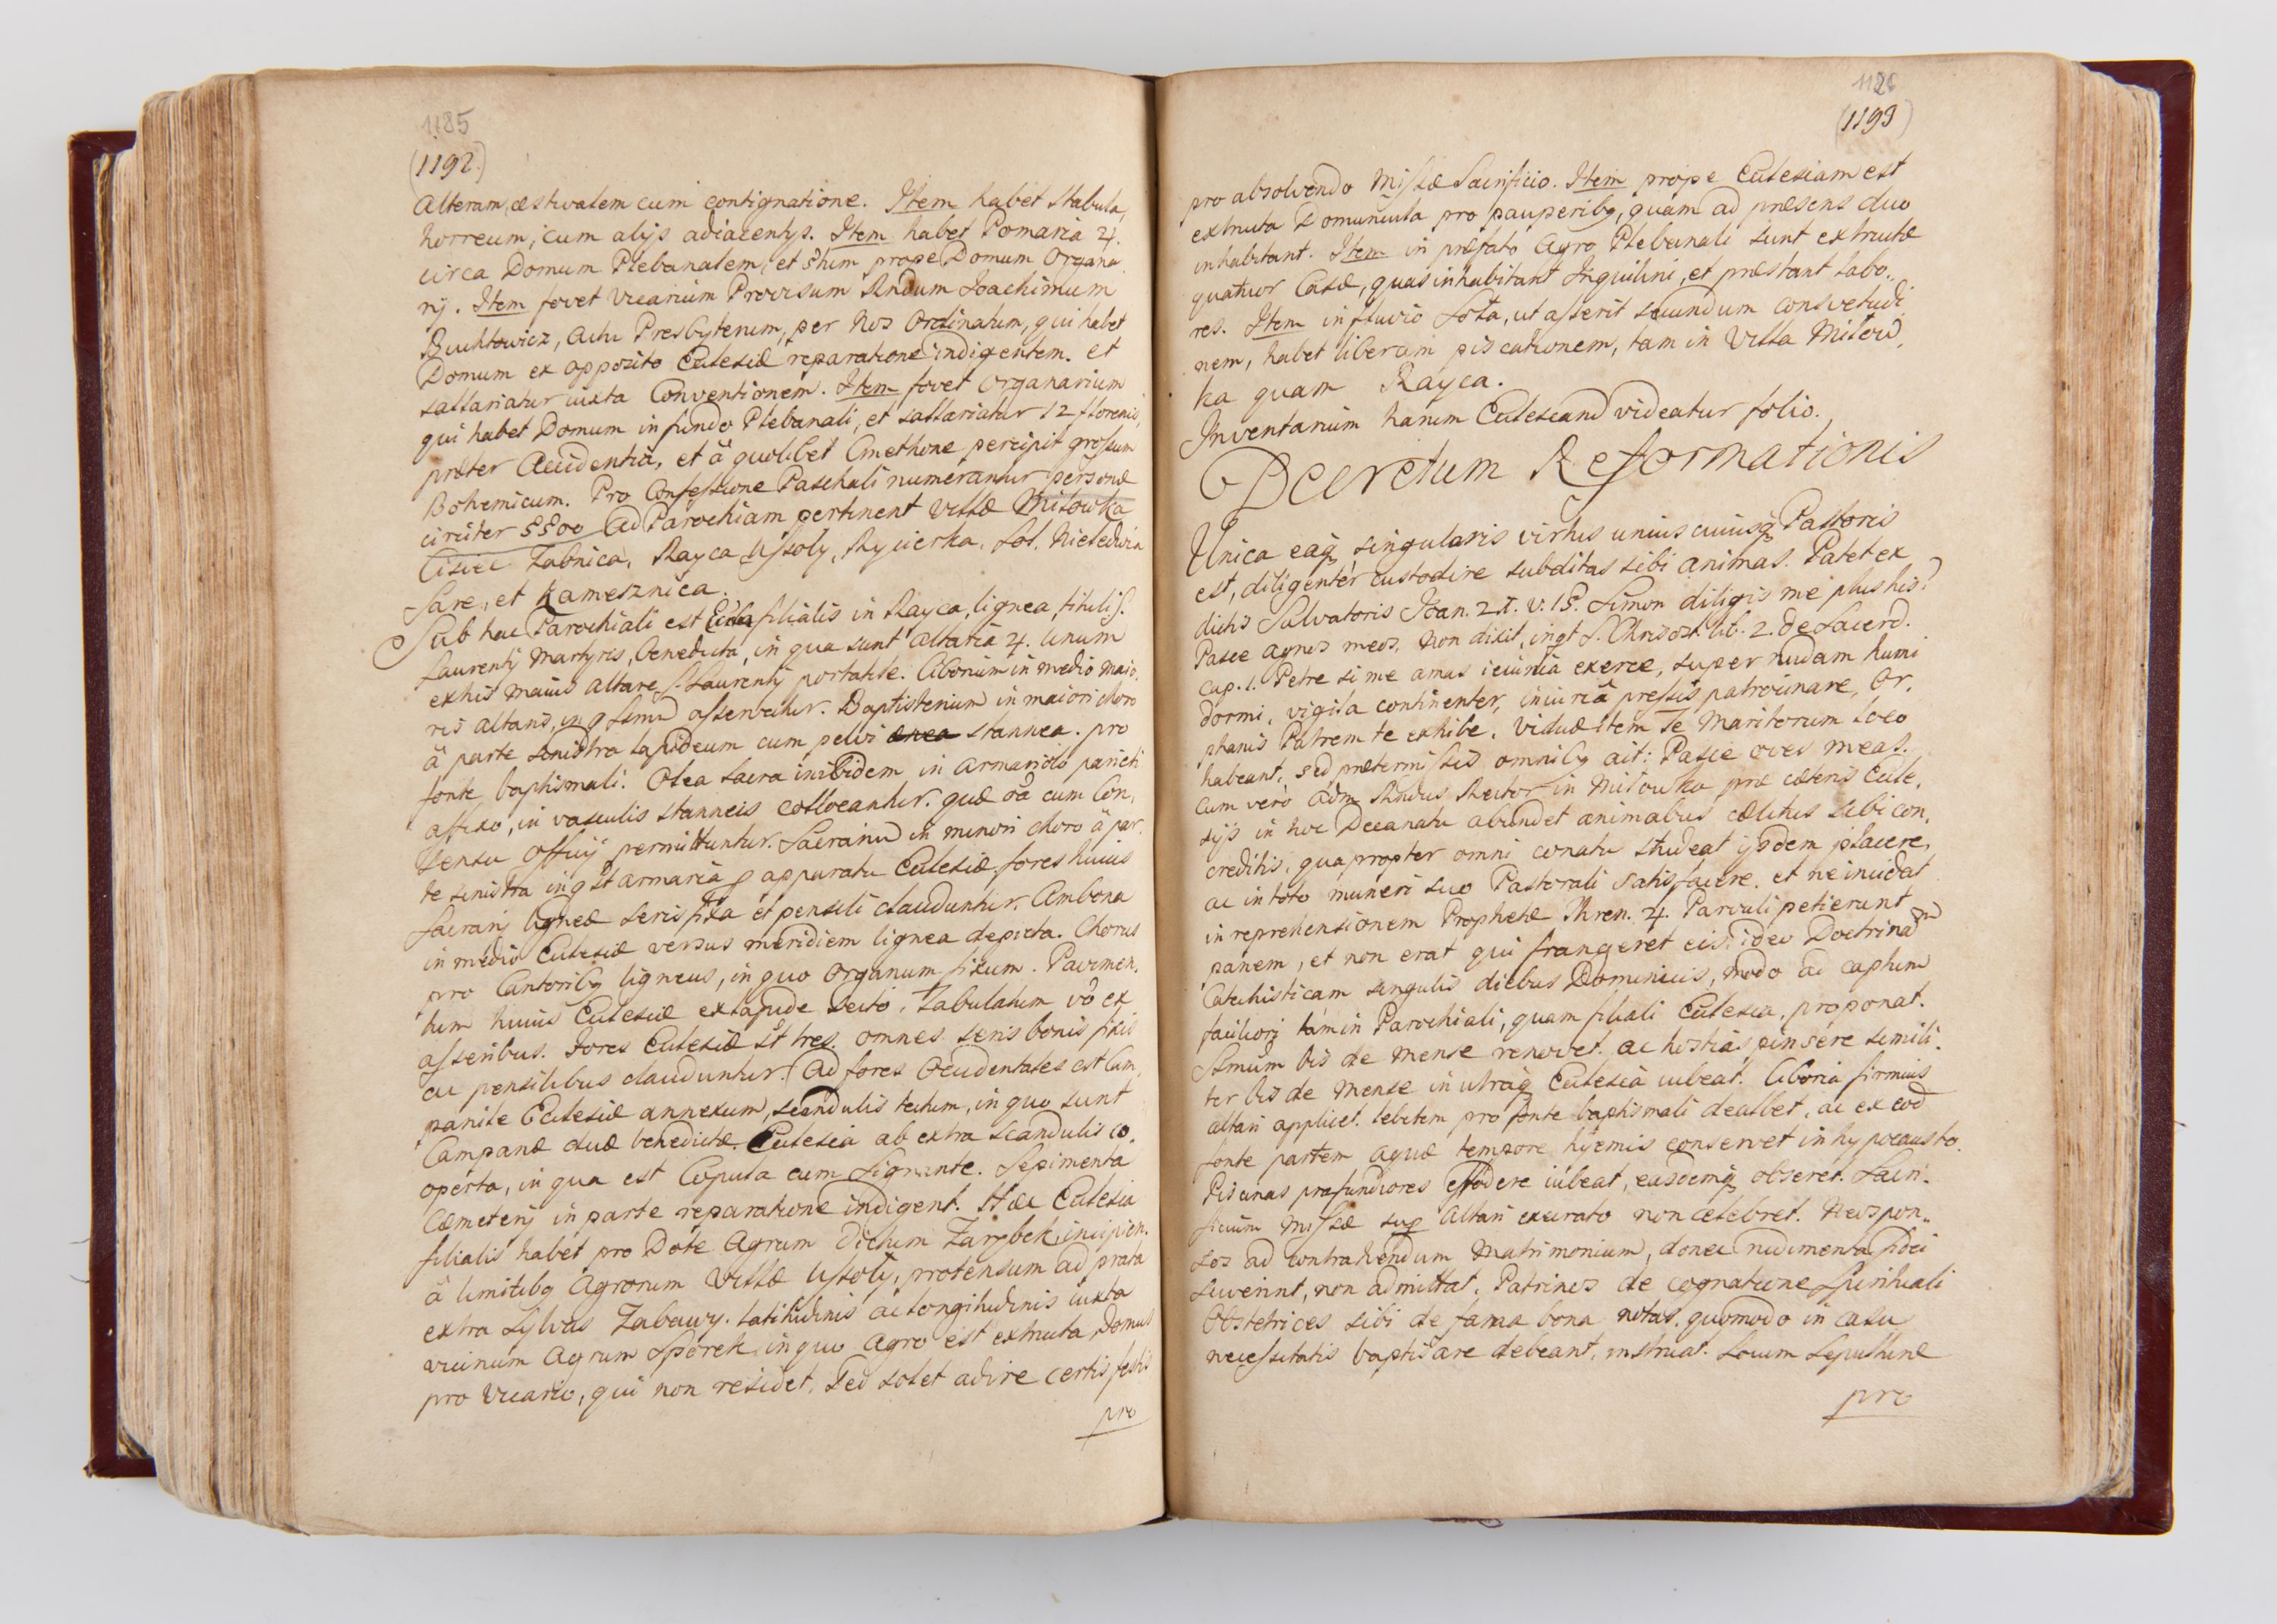 1185
(1192.)
Alteram, æstivalem cum contignatione. Item habet stabula,
horreum, cum alijs adiacentijs. Item habet Pomaria 4.
circa Domum Plebanalem, et 5tum prope Domum Organa
rij. Item fovet Vicarium Provisum Rndum Joachimum
Buchtowicz, Actu Presbyterum, per Nos Ordinatum, qui habet
Domum ex opposito Ecclesiæ reparatione indigentem. et
sallariatur iuxta Conventionem. Item fovet Organarium
qui habet Domum in fundo Plebanali, et sallariatur 12 florenis,
præter Accidentia, et à quolibet Cmethone percipit grossum
Bohemicum. Pro Confessione Paschali numerantur personæ
circiter 5500 Ad Parochiam pertinent Villæ Milowka
Cisiec Zabnica, Rayca Ussoly, Rycierka, Sol. Nieledwia
Sare, et Kamesznica.
Sub hac Parochiali est Eccla filialis in Rayca, lignea, tituli S.
Laurentij Martyris, benedicta, in qua sunt Altaria 4. Unum
ex his maius Altare S. Laurentij portatile. Ciborium in medio maio,
ris altaris, in q Ssmum asservatur. Baptisterium in maiori choro
à parte sinistra lapideum cum pelvi stannea. pro
fonte baptismali. Olea sacra inibidem in armariolo parieti
affixo, in vasculis stanneis collocantur. quæ oa cum Con,
sensu Officij permittuntur. Sacrarium in minori choro à par,
te sinistra in q st armaria p apparatu Ecclesiæ, fores huius
Sacrarij ligneæ seris fixa et pensili clauduntur. Ambona
in medio Ecclesiæ versus meridiem lignea depicta. Chorus
pro Cantoribq ligneus, in quo Organum fixum. Pavimen,
tum huius Ecclesiæ ex lapide secto, Tabulatum vo ex
asseribus. Fores Ecclesiæ st tres. omnes seris bonis fixis
ac pensilibus clauduntur. Ad fores Occidentales est Cam,
panile Ecclesiæ annexum, scandulis tectum, in quo sunt
Campanæ duæ benedictæ. Ecclesia ab extra scandulis co,
operta, in qua est Cupula cum Signante. Sepimenta
Cæmeterij in parte reparatione indigent. Hæc Ecclesia
filialis habet pro Dote Agrum dictum Zarębek, incipien.
à limitibq Agrorum Villæ Ussoly, protensum ad prata
extra Sylvas Zabawy. latitudinis ac longitudinis iuxta
vicinum Agrum Sporek, in quo Agro est extructa Domus
pro Vicario, qui non residet, Sed solet adire certis festis
pro
1186
(1193)
pro absolvendo Missæ Sacrificio. Item prope Ecclesiam est
extructa Domuncula pro pauperibq, quam ad præsens duo
inhabitant. Item in præfato Agro Plebanali sunt extructæ
quatuor Casæ, quas inhabitant Inquilini, et præstant labo,,
res. Item in fluvio Sola, ut asserit secundum consvetudi
nem, habet liberam piscationem, tam in Villa Milow,
ka quam Rayca.
Inventarium harum Ecclesiarum videatur folio.
Decretum Reformationis
Unica eaq singularis virtus unius cuiusq Pastoris
est, diligentèr custodire subditas sibi animas. Patet ex
dictis Salvatoris Joan. 21. v. 15. Simon diligis me plus his?
Pasce agnos meos. Non dixit, inqt S. Chrisost. lib. 2. de Sacerd.
Cap. 1. Petre si me amas ieiunia exerce, super nudam humi
dormi, vigila continenter, iniuriâ pressis patrocinare, Or,
phanis Patrem te exhibe. Viduæ item Te Maritorum loco
habeant, sed prætermissis omnibq ait: Pasce oves meas.
Cum verò Adm Rndus Rector in Milowka præ cæteris Eccle,
sijs in hoc Decanatu abundet animabus cælitus sibi con,
creditis, quapropter omni conatu studeat ijsdem placere,
ac in toto muneri suo Pastorali satisfacere. et ne incidat
in reprehensionem Prophetæ Thren. 4. Parvuli petierunt
panem, et non erat qui frangeret eis: ideo Doctrinam
Catechisticam singulis diebus Dominicis, modo ad captum
faciliori tam in Parochiali, quam filiali Ecclesia, proponat.
Ssmum bis de mense renovet. ac hostias pinsere simili,
ter bis de mense in utraq Ecclesia iubeat. Ciboria firmius
altari applicet. lebetem pro fonte baptismali dealbet, ac ex eod
fonte partem aquæ tempore hyemis conservet in hypocausto.
Piscinas profundiores effodere iubeat, easdemq obseret. Sacri,
ficium Missæ sup Altari execrato non celebret. Neospon,,
sos ad contrahendum Matrimonium, donec rudimenta fidei
sciverint, non admittat. Patrinos de cognatione Spirituali
Obstetrices sibi de fama bona notas, quomodo in casu
necessitatis baptisare debeant, instruat. Locum Sepulturæ
pro